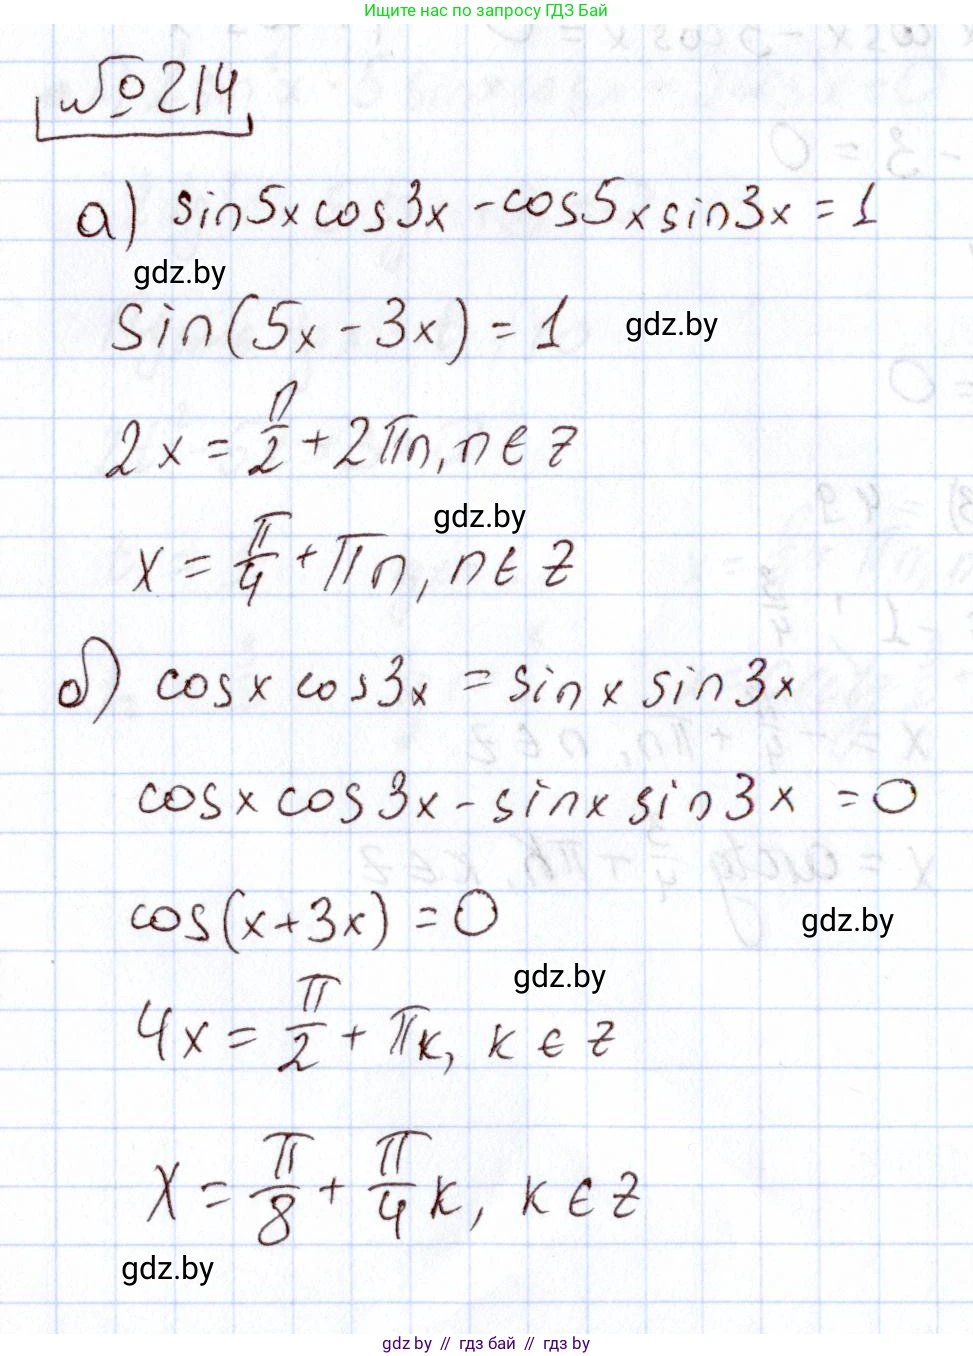 Ищите нас по запросу ГДЗ Бай
№214
а) sin5x cos3x - cos5x sin3x = 1
gdz.by
sin(5x - 3x) = 1
gdz.by
2x = π/2 + 2πn, n ∈ z
gdz.by
x = π/4 + πn, n ∈ z
б) cosx cos3x = sinx sin3x
cosx cos3x - sinx sin3x = 0
cos(x+3x) = 0
gdz.by
gdz.by
4x = π/2 + πк, к ∈ z
x = π/8 + π/4 к, к ∈ z
gdz.by
gdz.by // гдз бай // гдз by